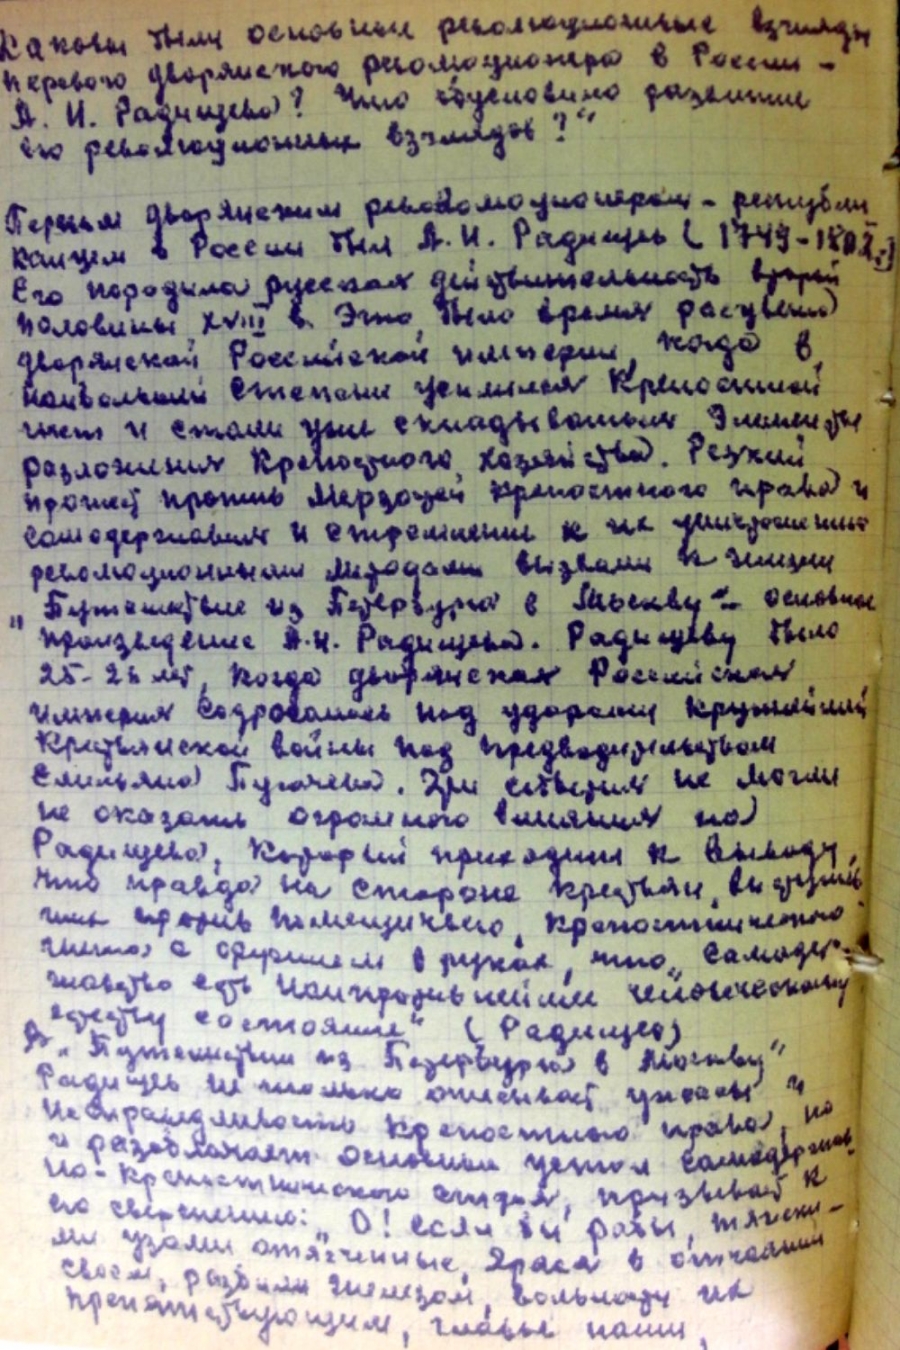 Каковы были основные революционные взгляды
первого дворянского революционера в России –
А. И. Радищева? Что обусловило развитие
его революционных взглядов?"
Первым дворянским революционером - республи
канцем в России был А. И. Радищев (1749-1802)
Его породила русская действительность второй
половины XVIII в. Это было время расцвета
дворянской Российской империи, когда в
наибольшей степени усилился крепостной
гнет и стали уже складываться элементы
разложения крепостного хозяйства. Резкий
протест против мерзостей крепостного права и
самодержавия и стремление к их уничтожению
революционными методами вызвали к жизни
„Путешествие из Петербурга в Москву" – основное
произведение А.Н. Радищева. Радищеву было
25-26 лет, когда дворянская Российская
империя содрогалась под ударами крупнейшей
крестьянской войны под предводительством
Емельяна Пугачева. Эти события не могли
не оказать огромного влияния на
Радищева, который приходит к выводу,
что правда на стороне крестьян, выступив
ших против помещичьего, крепостнического
гнета с оружием в руках, что „самодер-
жавство есть наипротивнейшее человеческому
естеству состояние" (Радищев)
В „Путешествии из Петербурга в Москву"
Радищев не только описывает ужасы и
несправедливость крепостного права, но
и разоблачает основы самодержав
но-крепостнического строя, призывает к
его свержению: „О! если бы рабы, тяжки-
ми узами отягченные, яряся в отчаянии
своем, разбили железом, вольности их
препятствующим, главы наши,